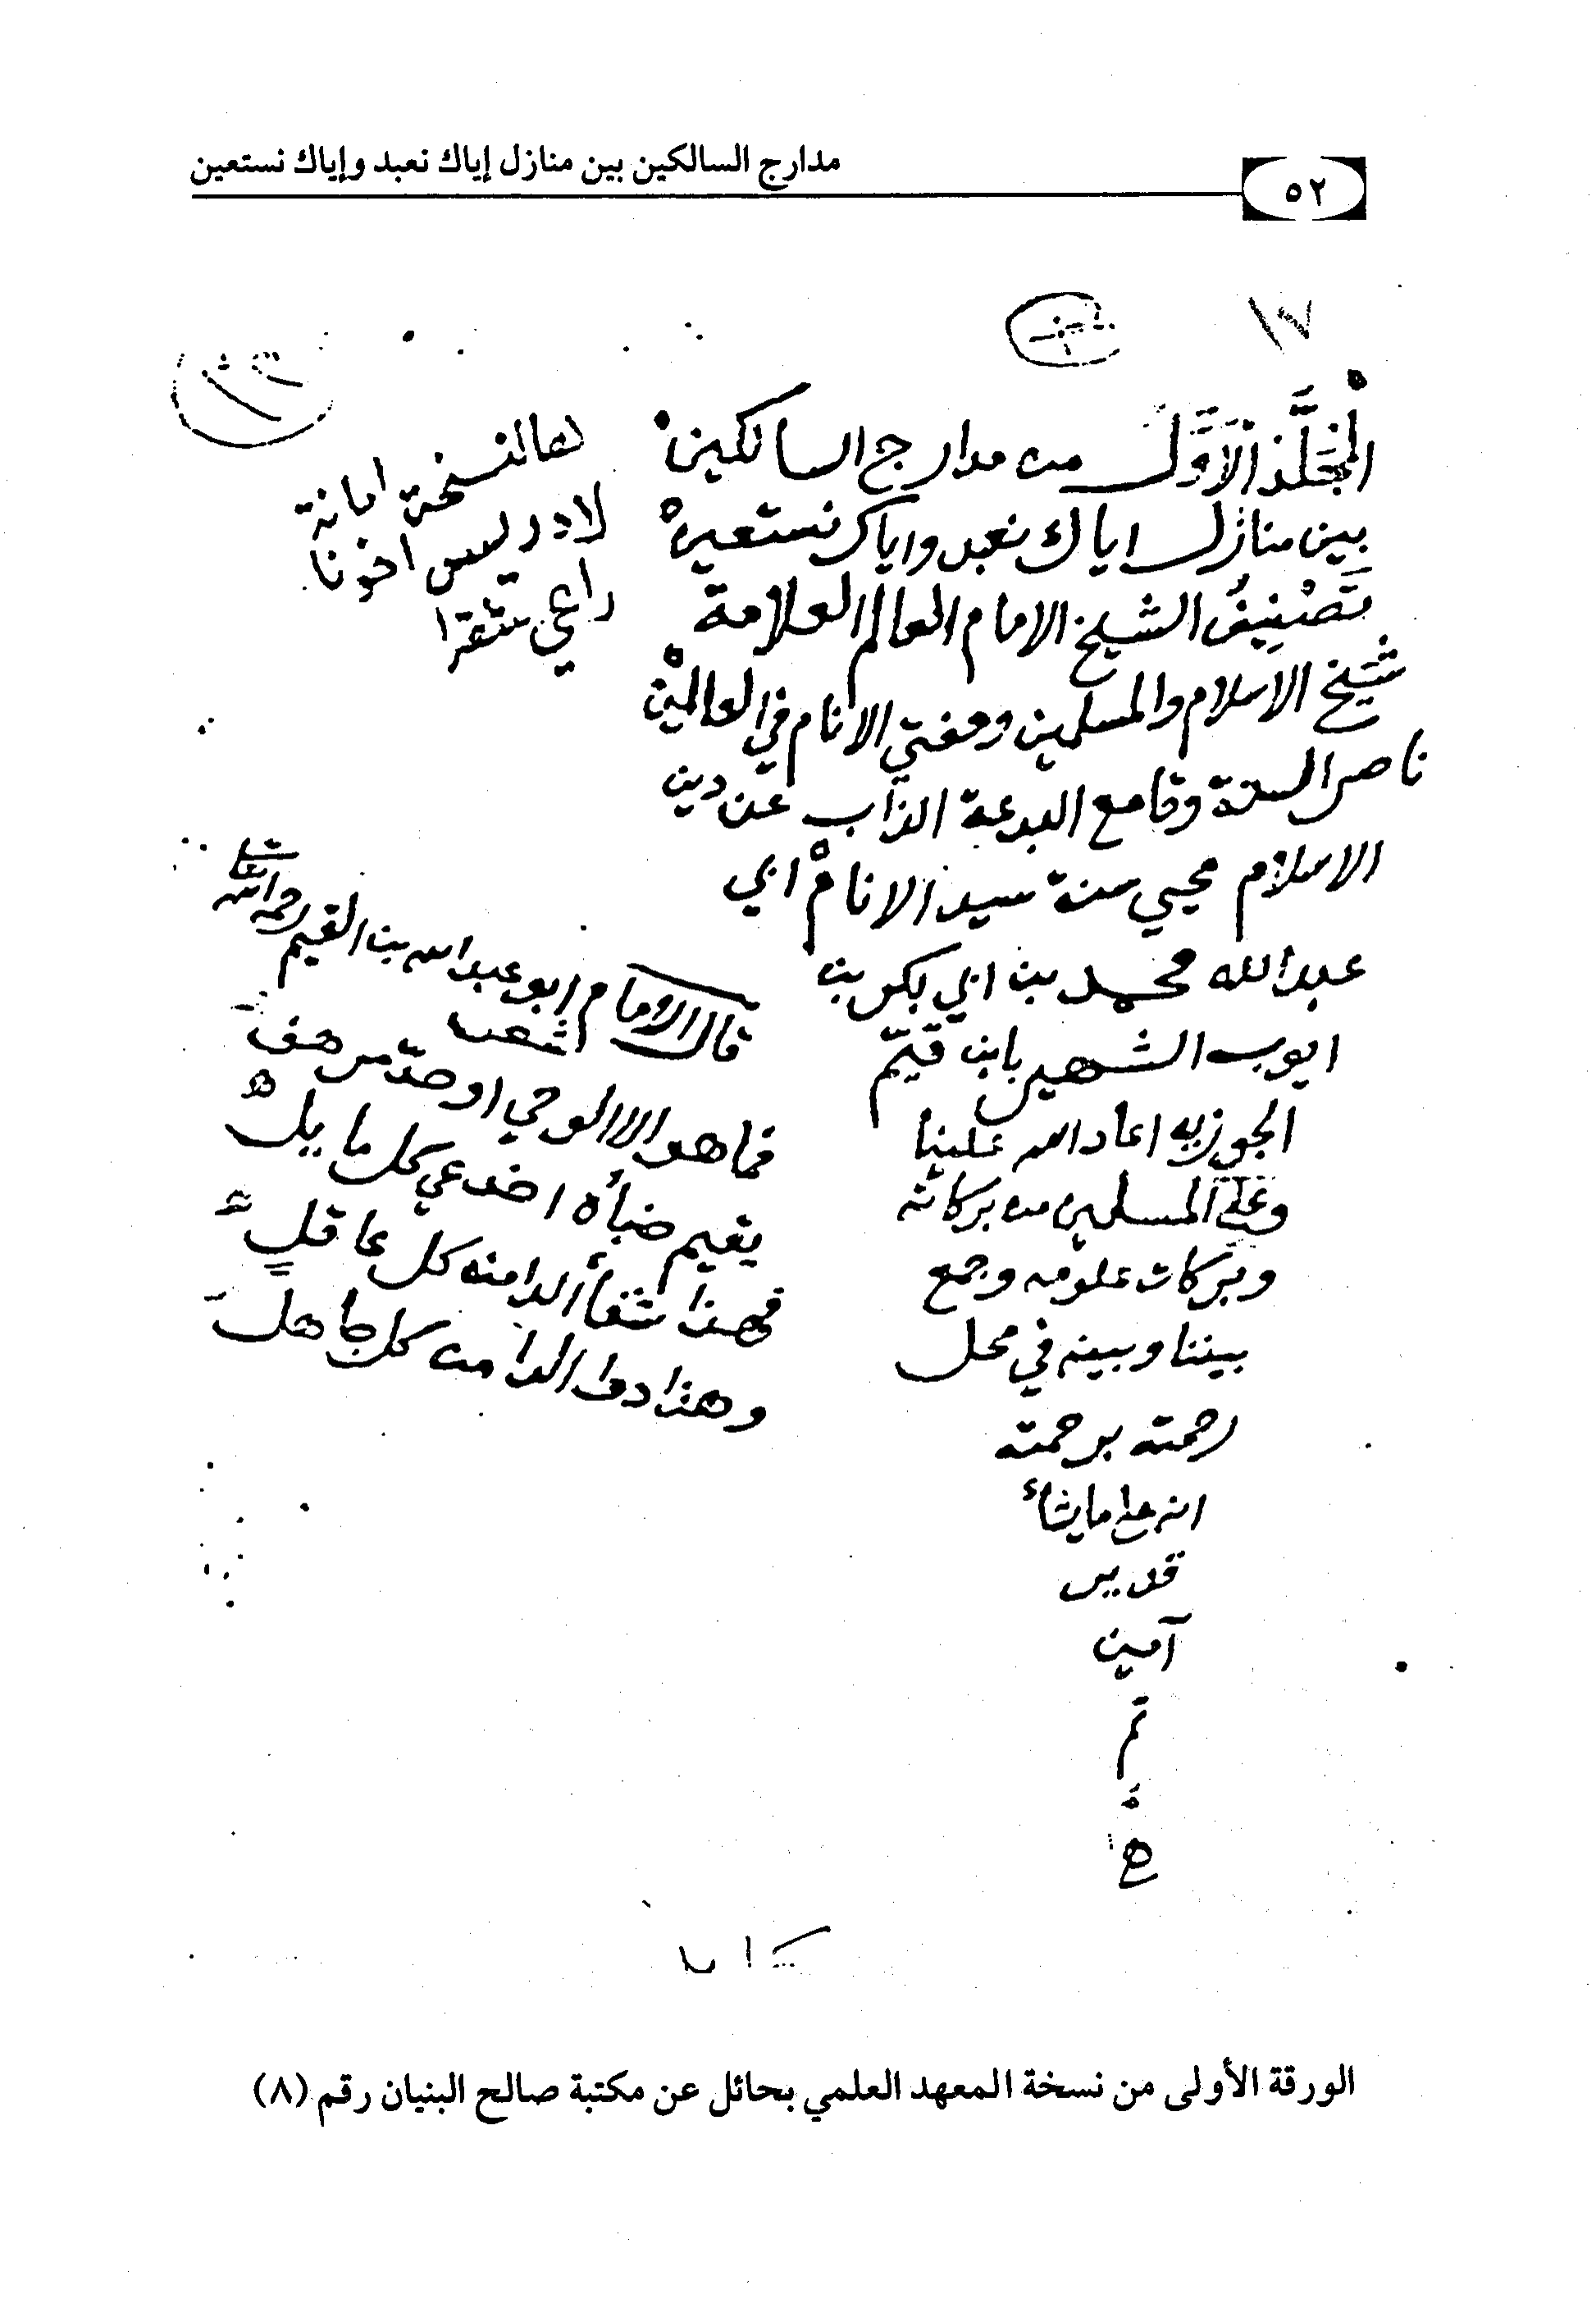 مدارج السالكين بين منازل إياك نعبد وإياك نستعين
٥٢
١٧
المجَلَّد الأَوَّل من مدارج السالكين
بين منازل اياك نعبد واياك نستعين
تَصْنِيفُ الشيخ الامام العالم العلامة
شيخ الاسلام والمسلمين ومفتي الانام في العالمين
ناصر السنة وقامع البدعة الذاب عن دين
الاسلام محيي سنة سيد الانام ابي
عبد الله محمد بن ابي بكر بن
ايوب الشهير بابن قيّم
الجوزيه اعاد الله علينا
وعلى المسلمين من بركاته
وبركات علومه وجمع
بيننا وبينه في محل
رحمته برحمته
انه على ما يشاء
قدير
آمين
تم
هالنسخة امانة
لادريس اخونا
راعي شقرا
قال الامام ابو عبد الله بن القيم رحمه الله تعالى
شعر
فما هو الا الوحي او حدّ مرهف
يقيم ضباه اخدعي كل مايل
فهذا شفاء الدا من كل عاقلٍ
وهذا دوا الدا من كل جاهل
الورقة الأولى من نسخة المعهد العلمي بحائل عن مكتبة صالح البنيان رقم (٨)